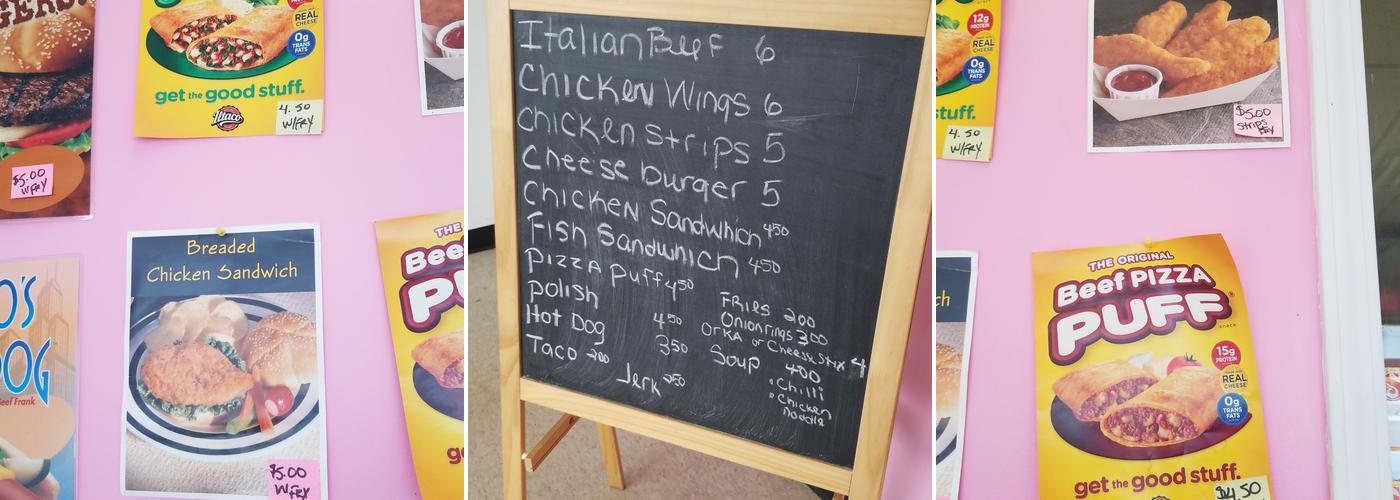 GERS!
$5.00
W/FRY
O'S
DOG
Beef Frank
REAL
CHEESE
0g
TRANS
FATS
get the good stuff.
Iltaco
4.50
W/FRY
Breaded
Chicken Sandwich
$5.00
W/FRY
THE
Bee
PU
ge
Italian Beef 6
Chicken Wings 6
Chicken strips 5
Cheese burger 5
Chicken Sandwhich 450
Fish Sandwhich 450
Pizza puff 450
polish 450
Hot Dog 350
Taco 200
Jerk 250
Fries 200
Onion rings 300
Orka or Cheese Stix 4
Soup 400
Chilli
Chicken
Noodle
12g
PROTEIN
MADE WITH
REAL
CHEESE
0g
TRANS
FATS
stuff.
4.50
W/FRY
ch
$5.00
strips
Fry
THE ORIGINAL
Beef PIZZA
PUFF
snack
15g
PROTEIN
MADE WITH
REAL
CHEESE
0g
TRANS
FATS
get the good stuff.
$4.50